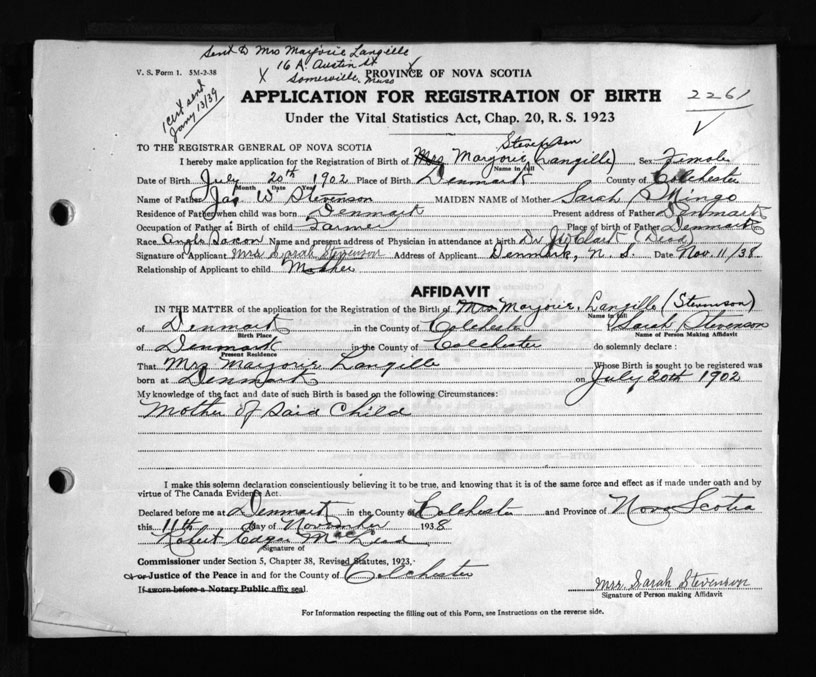 Sent to Mrs Marjorie Langille
16 A. Austin St
X Somerville, Mass X
V. S. Form 1. 5M-2-38
PROVINCE OF NOVA SCOTIA
1 cert sent
Jany 13/39
APPLICATION FOR REGISTRATION OF BIRTH
2261
Under the Vital Statistics Act, Chap. 20, R. S. 1923
TO THE REGISTRAR GENERAL OF NOVA SCOTIA
Stevenson
I hereby make application for the Registration of Birth of Mrs Marjorie (Langille) Sex Female
Name in full
Date of Birth July 20th 1902 Place of Birth Denmark County of Colchester
Month Date Year
Name of Father Jas W Stevenson MAIDEN NAME of Mother Sarah Mingo
Residence of Father when child was born Denmark Present address of Father Denmark
Occupation of Father at Birth of child Farmer Place of birth of Father Denmark
Race Anglo Saxon Name and present address of Physician in attendance at birth Dr J W Clark (Dead)
Signature of Applicant Mrs Sarah Stevenson Address of Applicant Denmark, N. S. Date Nov. 11/38
Relationship of Applicant to child Mother
AFFIDAVIT
IN THE MATTER of the application for the Registration of the Birth of Mrs Marjorie Langille (Stevenson)
Name in full
of Denmark in the County of Colchester Sarah Stevenson
Birth Place Name of Person Making Affidavit
of Denmark in the County of Colchester do solemnly declare :
Present Residence
That Mrs Marjorie Langille Whose Birth is sought to be registered was
born at Denmark on July 20th 1902
My knowledge of the fact and date of such Birth is based on the following Circumstances:
Mother of Said Child
I make this solemn declaration conscientiously believing it to be true, and knowing that it is of the same force and effect as if made under oath and by
virtue of The Canada Evidence Act.
Declared before me at Denmark in the County of Colchester and Province of Nova Scotia
this 11th day of November 1938
Robert Edgar
Signature of
Commissioner under Section 5, Chapter 38, Revised Statutes, 1923,
or Justice of the Peace in and for the County of Colchester
If sworn before a Notary Public affix seal.
Mrs. Sarah Stevenson
Signature of Person making Affidavit
For Information respecting the filling out of this Form, see Instructions on the reverse side.